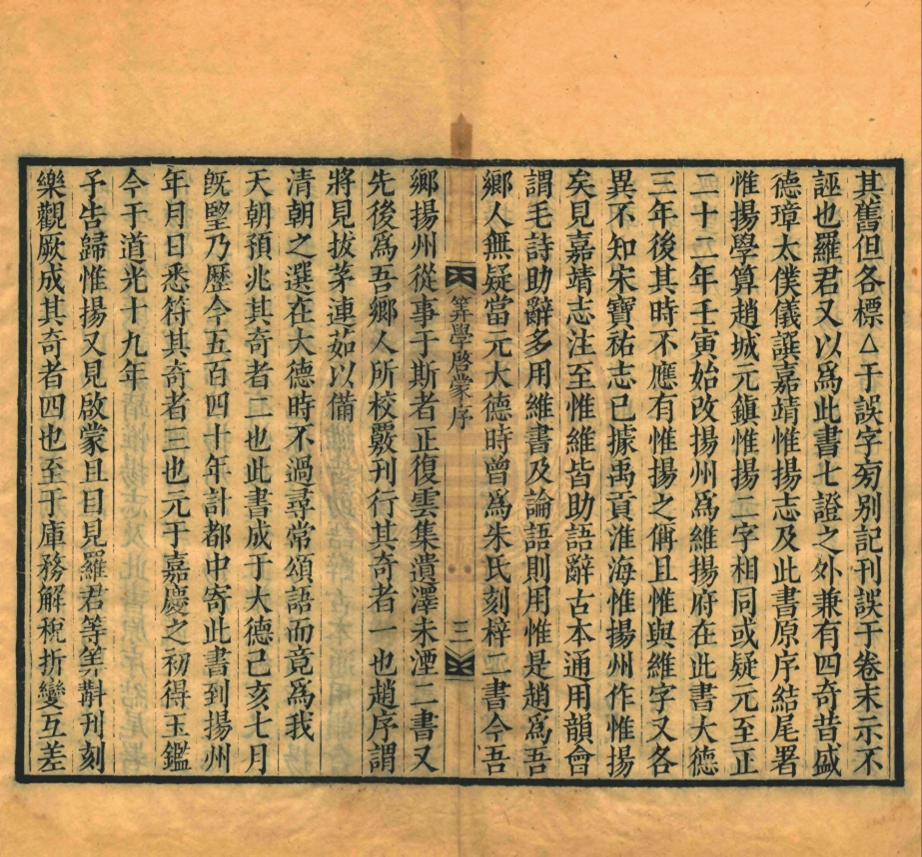 其舊但各標△于誤字旁別記刊誤于卷末示不
誣也羅君又以爲此書七證之外兼有四奇昔盛
德璋太僕儀譔嘉靖惟揚志及此書原序結尾署
惟揚學算趙城元鎮惟揚二字相同或疑元至正
二十二年壬寅始改揚州爲維揚府在此書大德
三年後其時不應有惟揚之偁且惟與維字又各
異不知宋寶祐志已據禹貢淮海惟揚州作惟揚
矣見嘉靖志注至惟維皆助語辭古本通用韻會
謂毛詩助辭多用維書及論語則用惟是趙爲吾
鄉人無疑當元大德時曾爲朱氏刻梓二書今吾
算學啓蒙序
三
鄉揚州從事于斯者正復雲集遺澤未湮二書又
先後爲吾鄉人所校覈刊行其奇者一也趙序謂
將見拔茅連茹以備
清朝之選在大德時不過尋常頌語而竟爲我
天朝預兆其奇者二也此書成于大德己亥七月
旣望乃歷今五百四十年計都中寄此書到揚州
年月日悉符其奇者三也元于嘉慶之初得玉鑑
今于道光十九年
予告歸惟揚又見啟蒙且目見羅君等筭斠刊刻
樂觀厥成其奇者四也至于庫務解稅折變互差